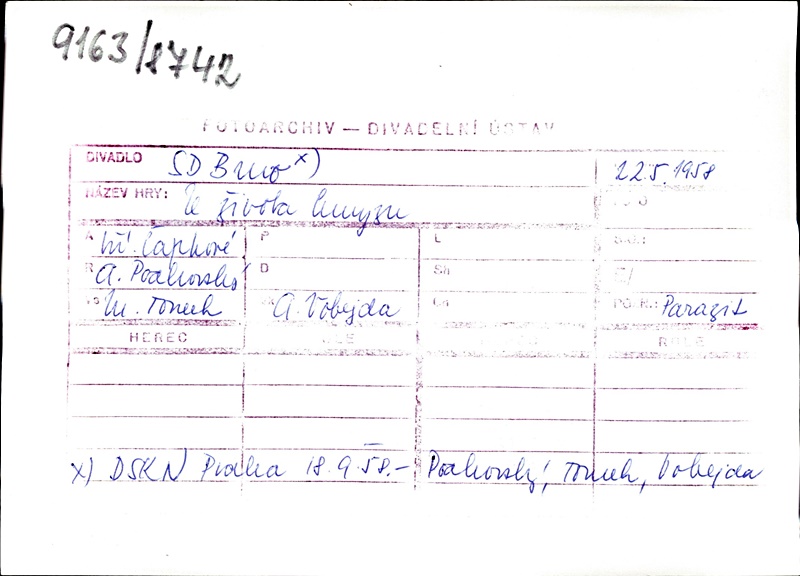 9163/8742
FOTOARCHIV — DIVADELNÍ ÚSTAV
DIVADLO SD Brno x) 22.5.1958
NÁZEV HRY: Ze života hmyzu
A bří. Čapkové P L
R A. Podhorský D Sh
M. Tonek A. Vobejda PO.R.: Parazit
HEREC ROLE
x) DSKN Praha 18.9.58.- Podhorský, Tonek, Vobejda